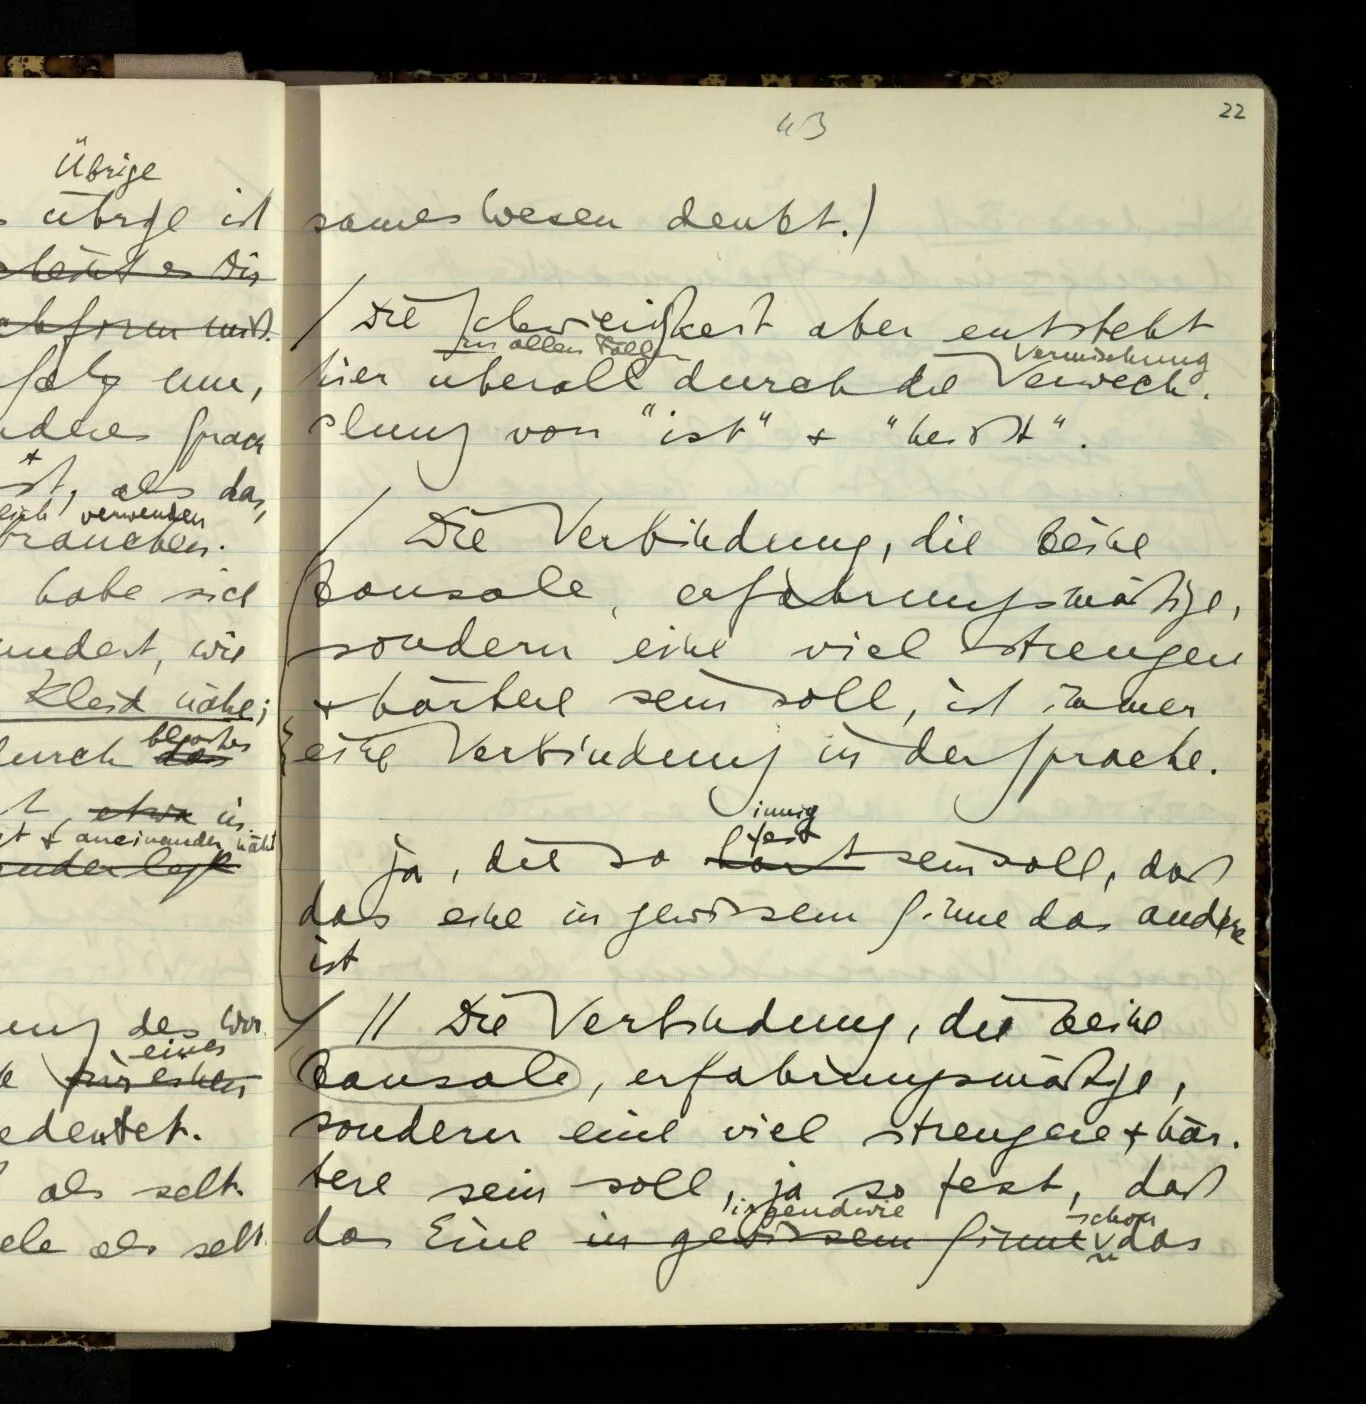 Übrige
übrige ist
folg nun,
anderes Sprach
ist, als das,
verwenden
brauchen.
habe sich
wie
Kleid nähe;
durch das
etwa in
& aneinander näht
des Wor
eines
bedeutet.
als selt
als selt
43
22
sames Wesen denkt.)
/ Die Schwierigkeit aber entsteht
in allen Fällen Vermischung
hier überall durch die Verwech-
slung von "ist" & "heißt".
/ Die Verbindung, die keine
kausale, erfahrungsmäßige,
sondern eine viel strengere
& härtere sein soll, ist immer
eine Verbindung in der Sprache.
innig
fest
ja, die so hart sein soll, daß
das eine in gewissem Sinne das andere
ist
/ // Die Verbindung, die keine
kausale, erfahrungsmäßige,
sondern eine viel strengere & här-
tere sein soll, ja so fest, daß
irgendwie schon
das Eine in gewissem Sinne das